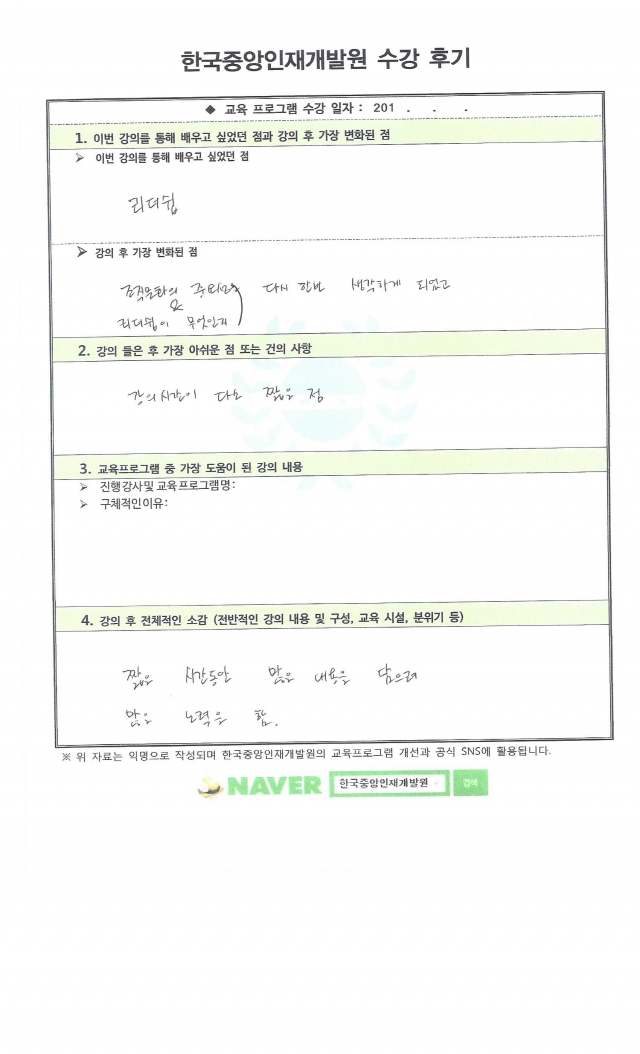 한국중앙인재개발원 수강 후기
◆ 교육 프로그램 수강 일자 : 201 . . .
1. 이번 강의를 통해 배우고 싶었던 점과 강의 후 가장 변화된 점
➢ 이번 강의를 통해 배우고 싶었던 점
리더쉽
➢ 강의 후 가장 변화된 점
조직문화의 중요성 다시 한번 생각하게 되었고
&
리더쉽이 무엇인지
2. 강의 들은 후 가장 아쉬운 점 또는 건의 사항
강의시간이 다소 짧은 점
3. 교육프로그램 중 가장 도움이 된 강의 내용
➢ 진행강사및교육프로그램명:
➢ 구체적인이유:
4. 강의 후 전체적인 소감 (전반적인 강의 내용 및 구성, 교육 시설, 분위기 등)
짧은 시간동안 많은 내용을 담으려
많은 노력을 함.
※ 위 자료는 익명으로 작성되며 한국중앙인재개발원의 교육프로그램 개선과 공식 SNS에 활용됩니다.
NAVER 한국중앙인재개발원 검색